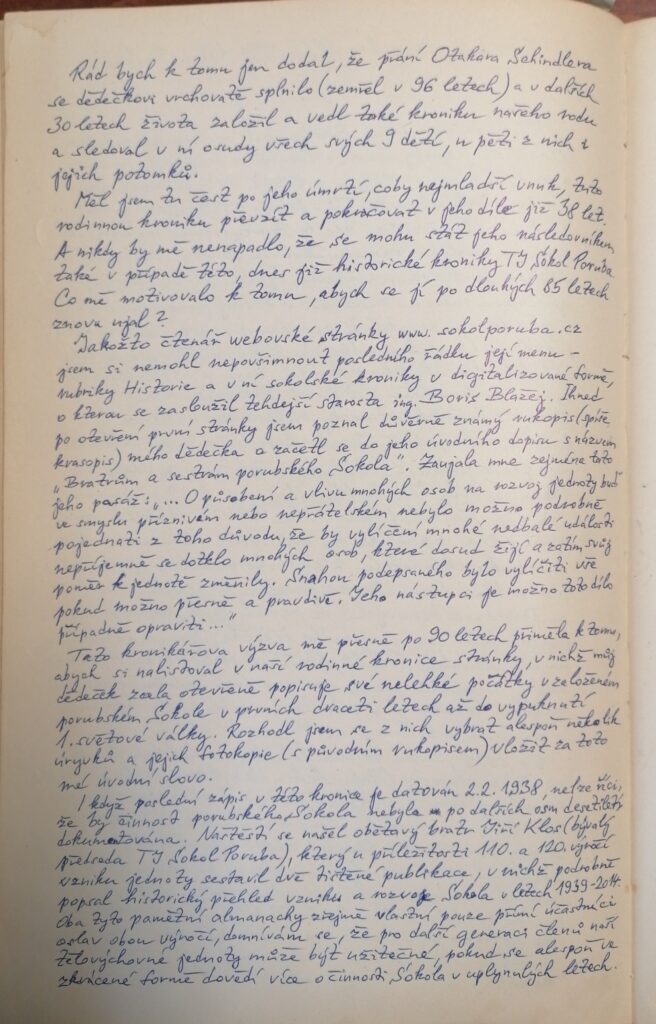 Rád bych k tomu jen dodal, že přání Otakara Schindlera
se dědečkovi vrchovatě splnilo (zemřel v 96 letech) a v dalších
30 letech života založil a vedl také kroniku našeho rodu
a sledoval v ní osudy všech svých 9 dětí, u pěti z nich i
jejich potomků.
Měl jsem tu čest po jeho úmrtí, coby nejmladší vnuk, tuto
rodinnou kroniku převzít a pokračovat v jeho díle již 38 let.
A nikdy by mě nenapadlo, že se mohu stát jeho následovníkem
také v případě této, dnes již historické kroniky TJ Sokol Poruba.
Co mě motivovalo k tomu, abych se jí po dlouhých 85 letech
znovu ujal?
Jakožto čtenář webovské stránky www.sokolporuba.cz
jsem si nemohl nepovšimnout posledního řádku její menu -
rubriky Historie a v ní sokolské kroniky v digitalizované formě,
o kterou se zasloužil tehdejší starosta ing. Boris Blažej. Ihned
po otevření první stránky jsem poznal důvěrně známý rukopis (spíše
krasopis) mého dědečka a začetl se do jeho úvodního dopisu s názvem
„Bratrům a sestrám porubského Sokola". Zaujala mne zejména tato
jeho pasáž: „... O působení a vlivu mnohých osob na rozvoj jednoty buď
ve smyslu příznivém nebo nepřátelském nebylo možno podrobně
pojednati z toho důvodu, že by vylíčení mnohé nedbalé události
nepříjemně se dotklo mnohých osob, které dosud žijí a zatím svůj
poměr k jednotě změnily. Snahou podepsaného bylo vylíčiti vše
pokud možno přesně a pravdivě. Jeho nástupci je možno toto dílo
případně opraviti..."
Tato kronikářova výzva mě přesně po 90 letech přiměla k tomu,
abych si nalistoval v naší rodinné kronice stránky, v nichž můj
dědeček zcela otevřeně popisuje své nelehké počátky v založeném
porubském Sokole v prvních dvaceti letech až do vypuknutí
1. světové války. Rozhodl jsem se z nich vybrat alespoň několik
úryvků a jejich fotokopie (s původním rukopisem) vložit za toto
mé úvodní slovo.
I když poslední zápis v této kronice je datován 2.2. 1938, nelze říci,
že by činnost porubského Sokola nebyla po dalších osm desetiletí
dokumentována. Naštěstí se našel obětavý bratr Jiří Klos (bývalý
předseda TJ Sokol Poruba), který u příležitosti 110. a 120. výročí
vzniku jednoty sestavil dvě tištěné publikace, v nichž podrobně
popsal historický přehled vzniku a rozvoje Sokola v letech 1939-2014.
Oba tyto pamětní almanachy zřejmě vlastní pouze přímí účastníci
oslav obou výročí, domnívám se, že pro další generaci členů naší
tělovýchovné jednoty může být užitečné, pokud se alespoň ve
zkrácené formě dovědí více o činnosti Sokola v uplynulých letech.